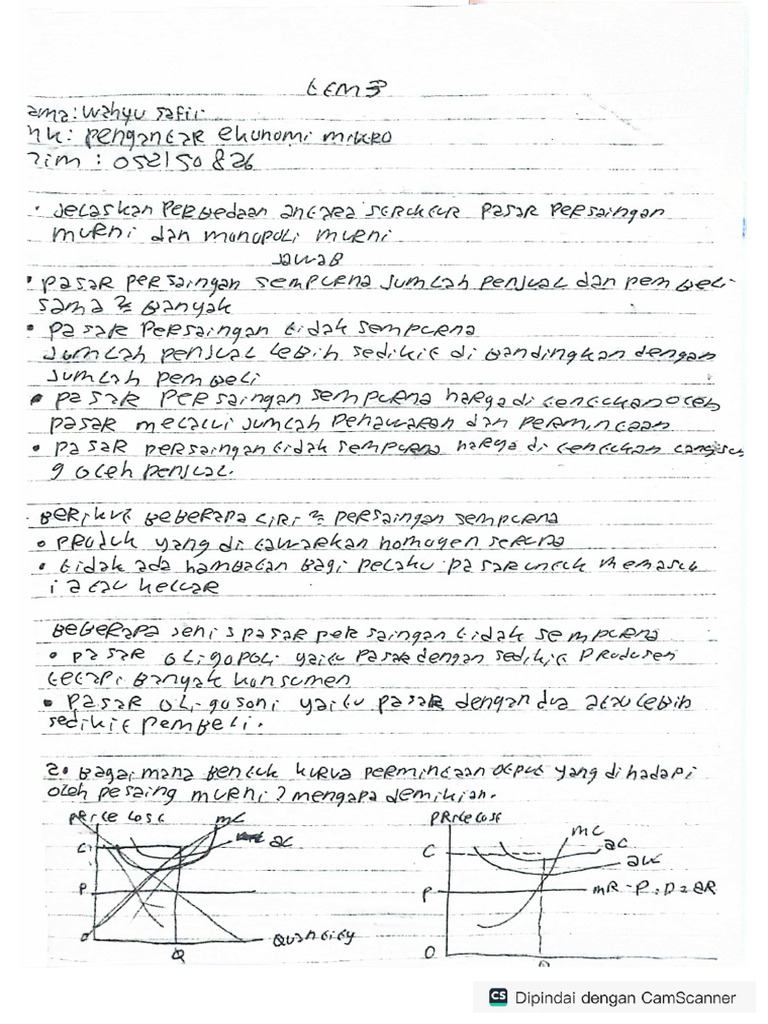 ama: Wahyu Safir
mk: Pengantar ekonomi mikro
nim : 052150826
Jelaskan Perbedaan antara struktur pasar Persaingan
murni dan monopoli murni
Jawab
• Pasar persaingan sempurna Jumlah penjual dan pembeli-
sama² Banyak
• Pasar Persaingan tidak sempurna
Jumlah penjual lebih sedikit di bandingkan dengan
Jumlah pembeli
• Pasar Persaingan sempurna harga di tentukan oleh
pasar melalui Jumlah Penawaran dan Permintaan
• Pasar persaingan tidak sempurna harga di tentukan
g oleh penjual.
Berikut Beberapa ciri² persaingan sempurna
• Produk yang di tawarkan homogen
• tidak ada hambatan bagi pelaku pasar untuk memasuk
i atau keluar
Beberapa Jenis pasar persaingan tidak sempurna
• Pasar oligopoli yaitu Pasar dengan sedikit Produsen
tetapi Banyak konsumen
• Pasar oligosoni yaitu pasar dengan dua atau lebih
sedikit pembeli.
2. Bagaimana Bentuk kurva permintaan output yang di hadapi
oleh pesaing murni? mengapa demikian.
Price cost MC
AC
C
P
0 Quantity
Q
Price cost
MC
C AC
P MR = P = D = AR
0
CS Dipindai dengan CamScanner